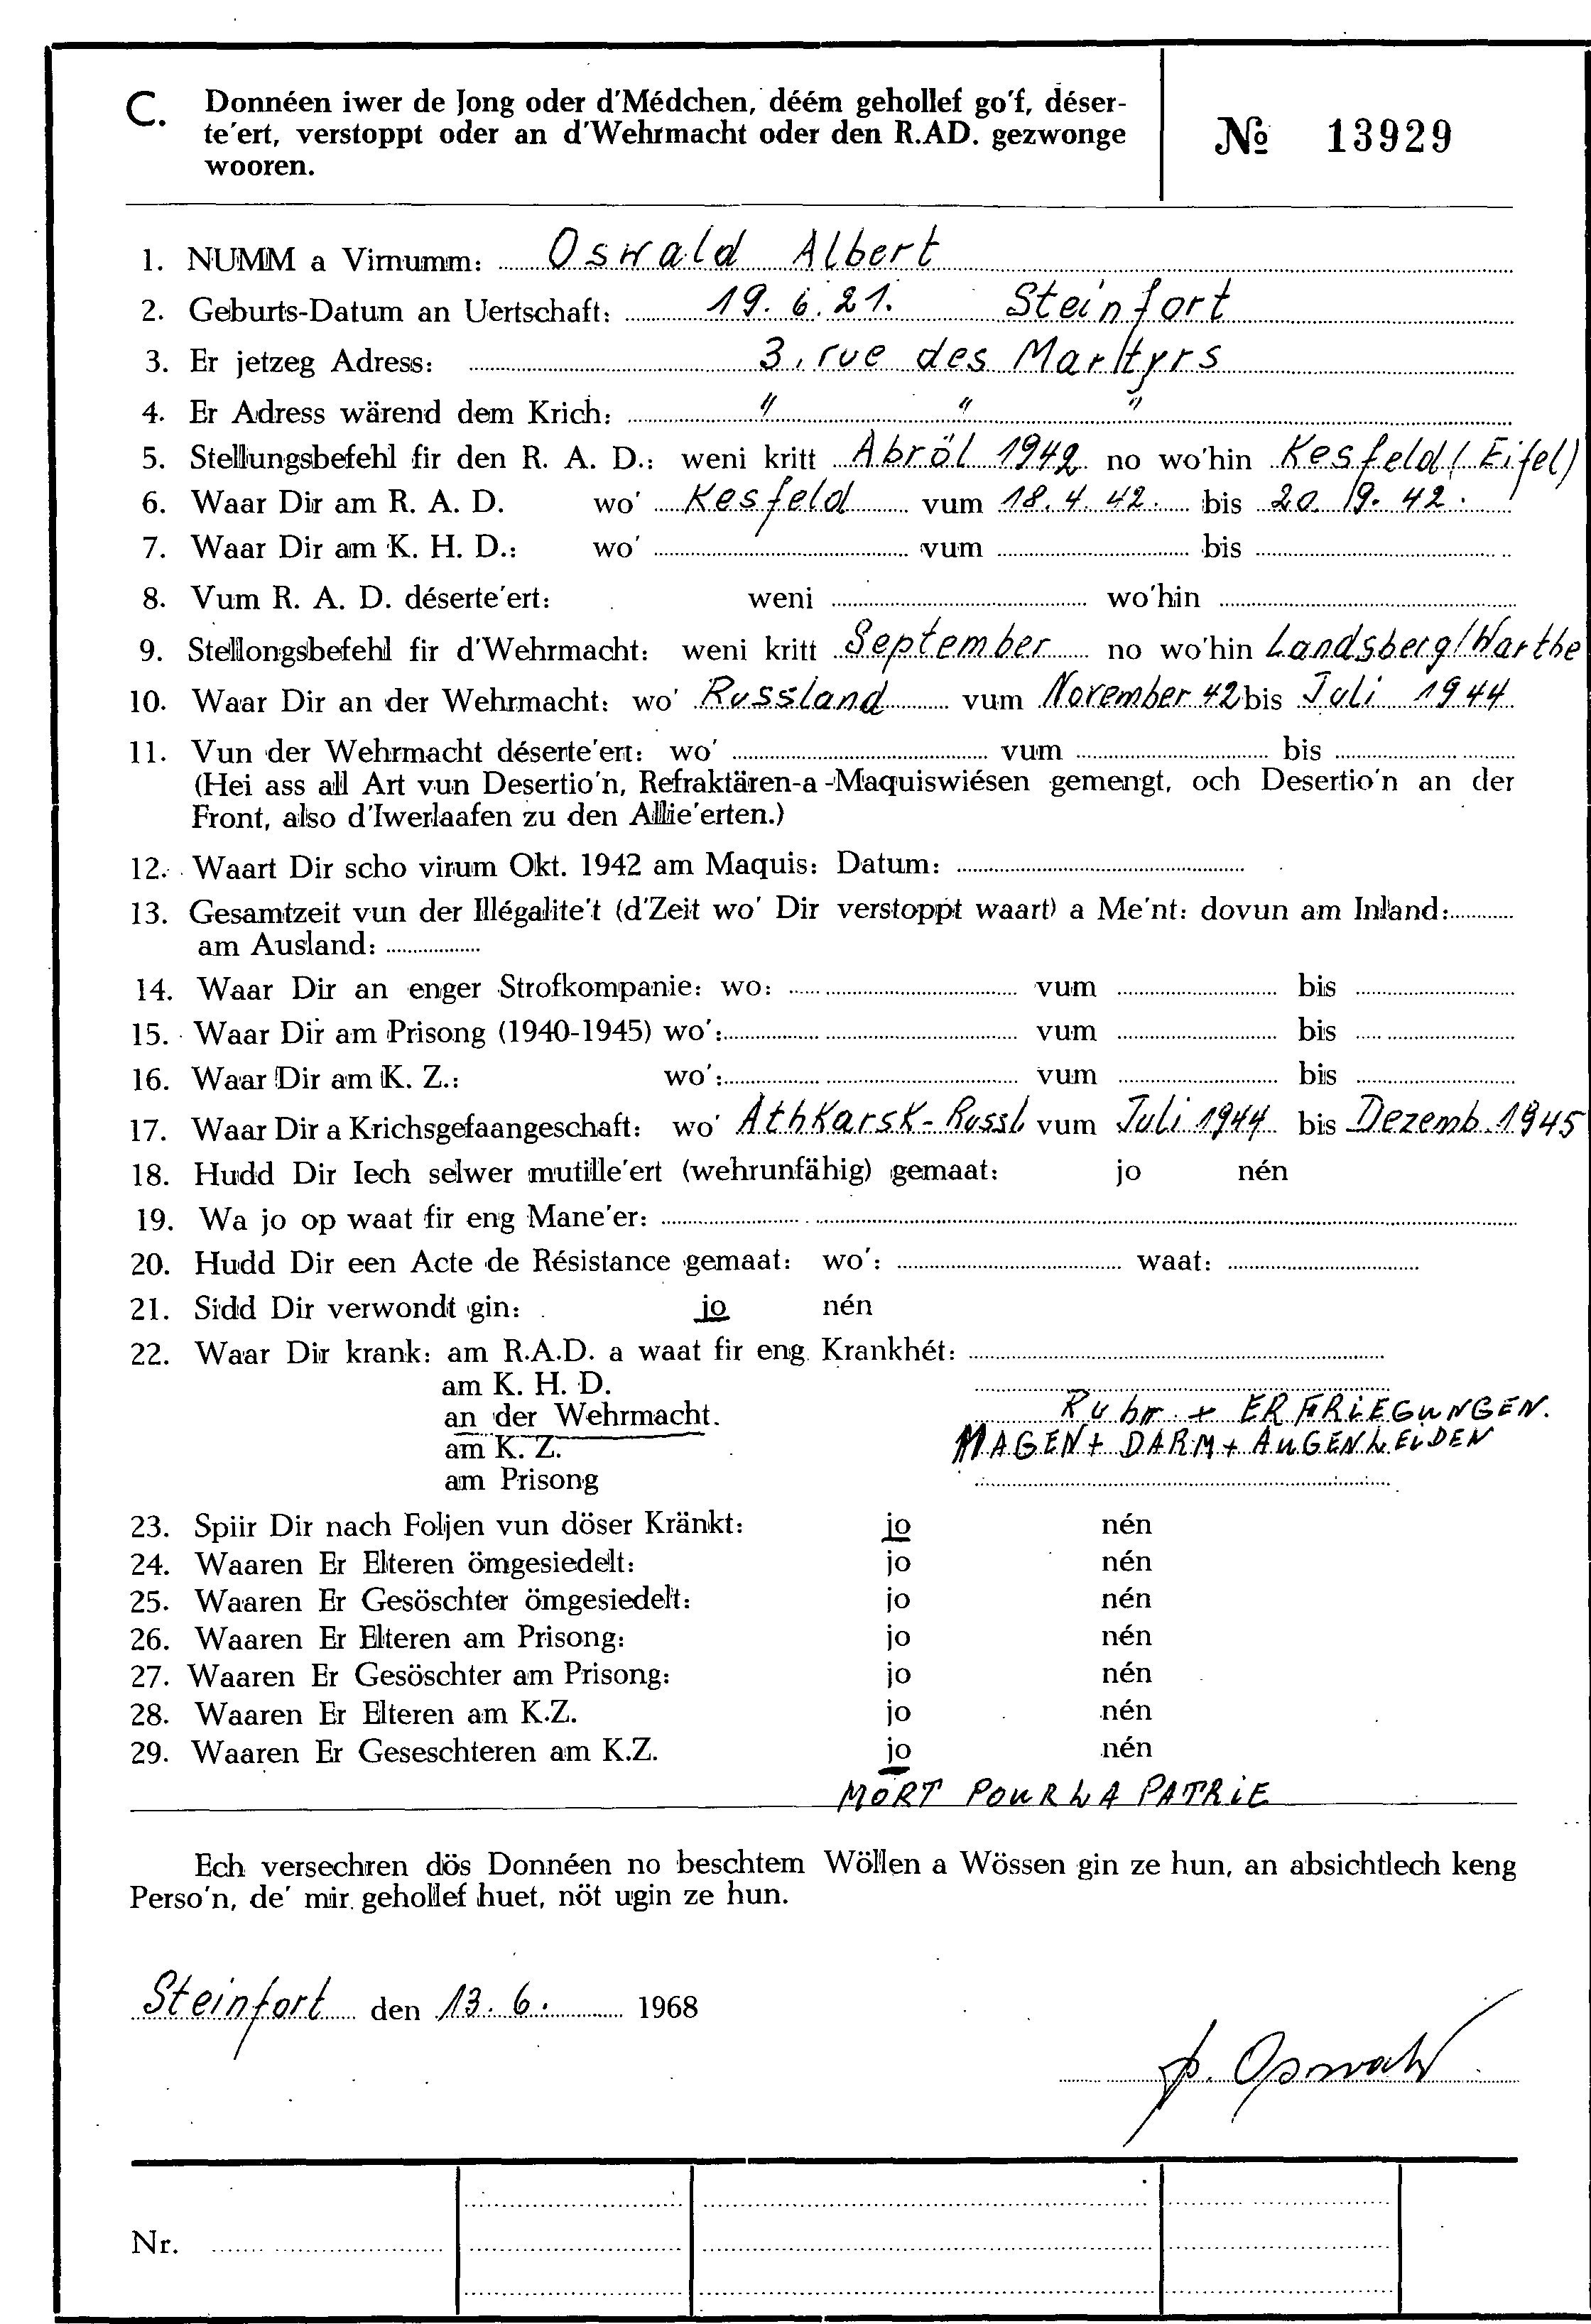 C. Donnéen iwer de Jong oder d'Médchen, déém gehollef go'f, déser-
te'ert, verstoppt oder an d'Wehrmacht oder den R.AD. gezwonge
wooren.
№ 13929
1. NUMM a Virnumm: Oswald Albert
2. Geburts-Datum an Uertschaft: 19. 6. 21. Steinfort
3. Er jetzeg Adress: 3, rue des Martyrs
4. Er Adress wärend dem Krich: " " "
5. Stellungsbefehl fir den R. A. D.: weni kritt Abröl 1942 no wo'hin Kesfeld (Eifel)
6. Waar Dir am R. A. D. wo' Kesfeld vum 18. 4. 42. bis 20. 9. 42.
7. Waar Dir am K. H. D.: wo' vum bis
8. Vum R. A. D. déserte'ert: weni wo'hin
9. Stellongsbefehl fir d'Wehrmacht: weni kritt September no wo'hin Landsberg/Warthe
10. Waar Dir an der Wehrmacht: wo' Russland vum November 42 bis Juli 1944
11. Vun der Wehrmacht déserte'ert: wo' vum bis
(Hei ass all Art vun Desertio'n, Refraktären-a-Maquiswiésen gemengt, och Desertio'n an der
Front, also d'Iwerlaafen zu den Allie'erten.)
12. Waart Dir scho virum Okt. 1942 am Maquis: Datum:
13. Gesamtzeit vun der Illégalite't (d'Zeit wo' Dir verstoppt waart) a Me'nt: dovun am Inland:
am Ausland:
14. Waar Dir an enger Strofkompanie: wo: vum bis
15. Waar Dir am Prisong (1940-1945) wo': vum bis
16. Waar Dir am K. Z.: wo': vum bis
17. Waar Dir a Krichsgefaangeschaft: wo' Athkarsk-Russl. vum Juli 1944 bis Dezemb. 1945
18. Hudd Dir Iech selwer mutille'ert (wehrunfähig) gemaat: jo nén
19. Wa jo op waat fir eng Mane'er:
20. Hudd Dir een Acte de Résistance gemaat: wo': waat:
21. Sidd Dir verwondt gin: jo nén
22. Waar Dir krank: am R.A.D. a waat fir eng Krankhét:
am K. H. D.
an der Wehrmacht. Ruhr + ERFRIEGUNGEN.
am K. Z. MAGEN + DARM + AUGENLEIDEN
am Prisong
23. Spiir Dir nach Foljen vun döser Kränkt: jo nén
24. Waaren Er Elteren ömgesiedelt: jo nén
25. Waaren Er Gesöschter ömgesiedelt: jo nén
26. Waaren Er Elteren am Prisong: jo nén
27. Waaren Er Gesöschter am Prisong: jo nén
28. Waaren Er Elteren am K.Z. jo nén
29. Waaren Er Geseschteren am K.Z. jo nén
MORT POUR LA PATRIE
Ech versechren dös Donnéen no beschtem Wöllen a Wössen gin ze hun, an absichtlech keng
Perso'n, de' mir gehollef huet, nöt ugin ze hun.
Steinfort den 13. 6. 1968
p. Oswald
Nr.